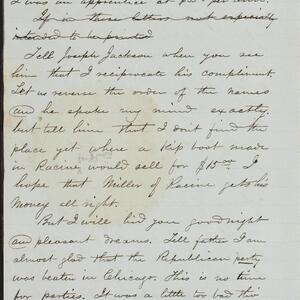 I was an apprentice at $50 per
If in these letters most especially
intended to be printed
Tell Joseph Jackson when you see
him that I reciprocate his compliment.
Let us reverse the order of the names
and he spoke my mind exactly.
but tell him that I don't find the
place yet where a Kip boot made
in Racine would sell for $15.00. I
hope that Miller of Racine gets his
money all right.
But I will bid you goodnight
and pleasant dreams. Tell father I am
almost glad that the Republican party
was beaten in Chicago. This is no time
for parties. It was a little too bad this